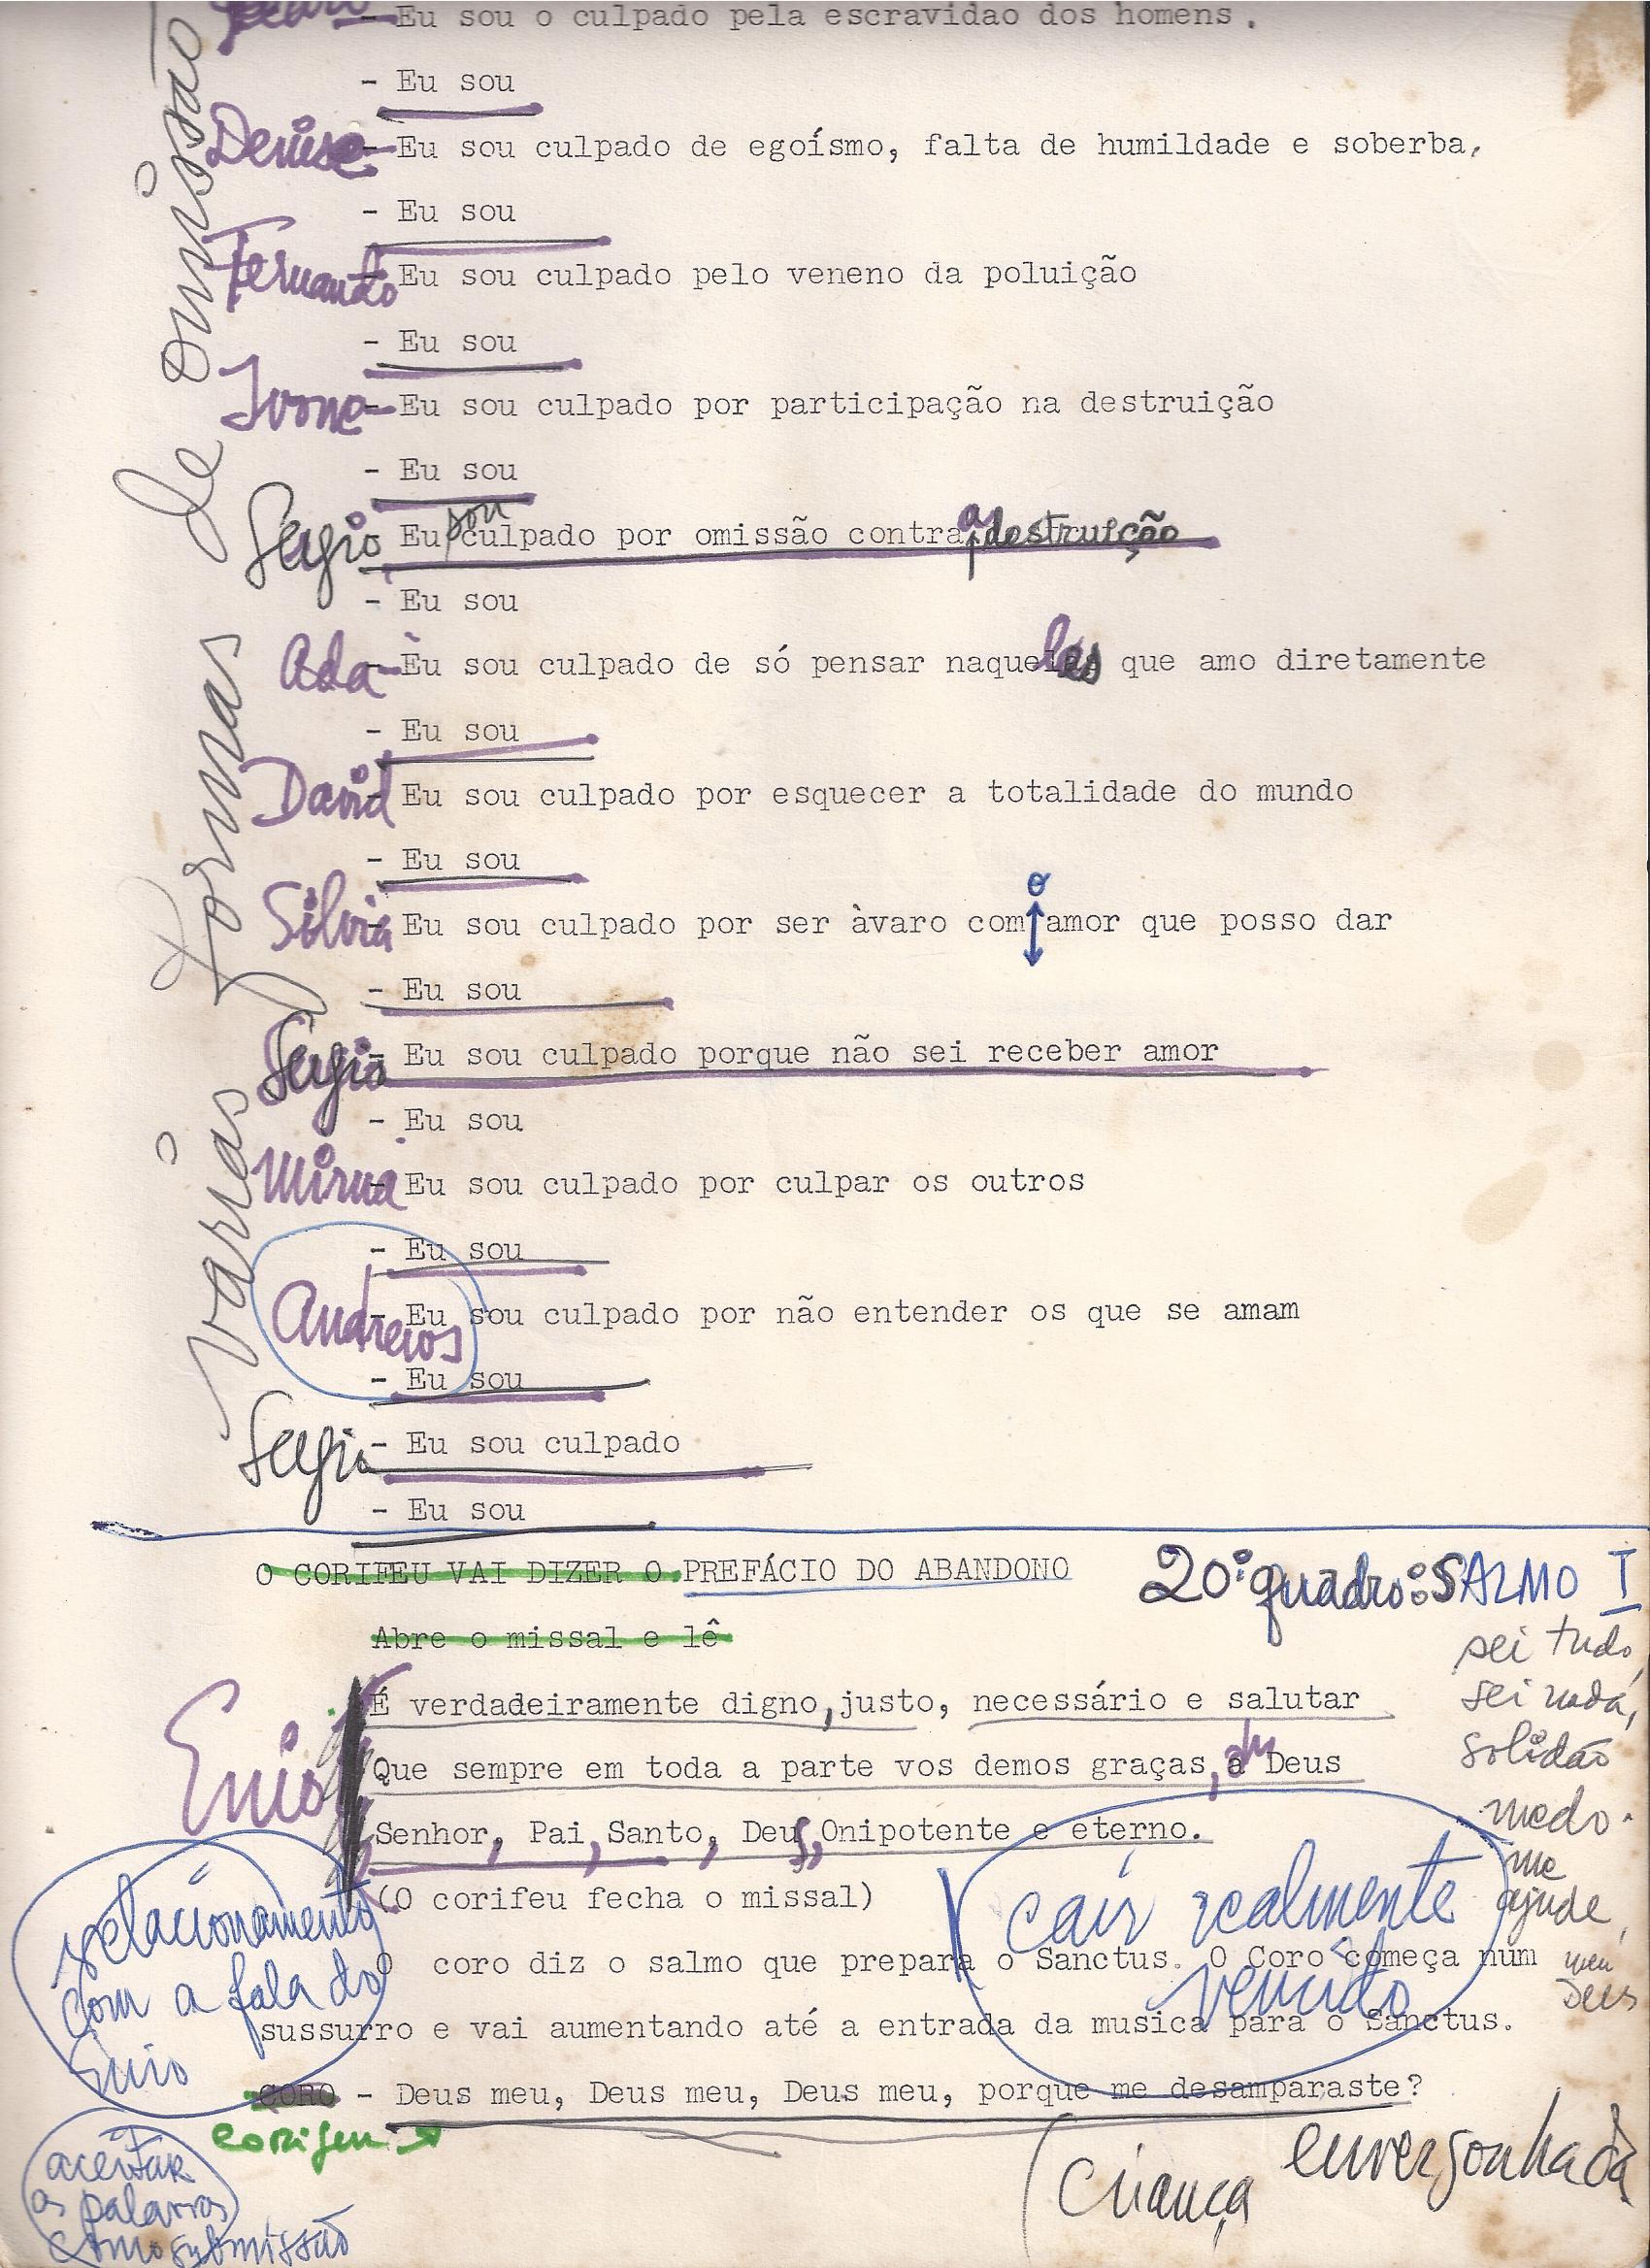 - Eu sou o culpado pela escravidao dos homens .
- Eu sou
Denise - Eu sou culpado de egoísmo, falta de humildade e soberba,
- Eu sou
Fernando Eu sou culpado pelo veneno da poluição
- Eu sou
Ivone - Eu sou culpado por participação na destruição
- Eu sou
Sergio Eu sou culpado por omissão contra a destruição
- Eu sou
Ada - Eu sou culpado de só pensar naqueles que amo diretamente
- Eu sou
David Eu sou culpado por esquecer a totalidade do mundo
- Eu sou
Silvia Eu sou culpado por ser àvaro com o amor que posso dar
- Eu sou
Sergio - Eu sou culpado porque não sei receber amor
- Eu sou
Mirna - Eu sou culpado por culpar os outros
- Eu sou
Andreios - Eu sou culpado por não entender os que se amam
- Eu sou
Sergio - Eu sou culpado
- Eu sou
varias formas de omissão
O CORIFEU VAI DIZER O PREFÁCIO DO ABANDONO
20º quadro: SALMO I
Abre o missal e lê
Enio
É verdadeiramente digno, justo, necessário e salutar
Que sempre em toda a parte vos demos graças, oh Deus
Senhor, Pai, Santo, Deus, Onipotente e eterno.
(O corifeu fecha o missal)
O coro diz o salmo que prepara o Sanctus. O Coro começa num
sussurro e vai aumentando até a entrada da musica para o Sanctus.
CORO - Deus meu, Deus meu, Deus meu, porque me desamparaste?
corifeu
sei tudo,
sei nada,
solidão
medo.
me
ajude,
meu
Deus
cair realmente
vencido
relacionamento
com a fala do
Enio
aceitar
as palavras
como submissão
Criança envergonhada